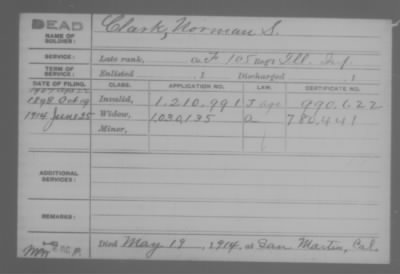 DEAD
NAME OF SOLDIER: Clark, Norman S.
SERVICE: Late rank, Co. F 105 Regt Ill. Inf.
TERM OF SERVICE: Enlisted 1 Discharged 1
DATE OF FILING. CLASS. APPLICATION NO. LAW. CERTIFICATE NO.
1898 Oct 19 Invalid, 1,210,991 J 990,622
1914 June 25 Widow, 1,030,135 a 780,441
Minor,
ADDITIONAL SERVICES:
REMARKS:
Died May 19, 1914, at San Martin, Cal.